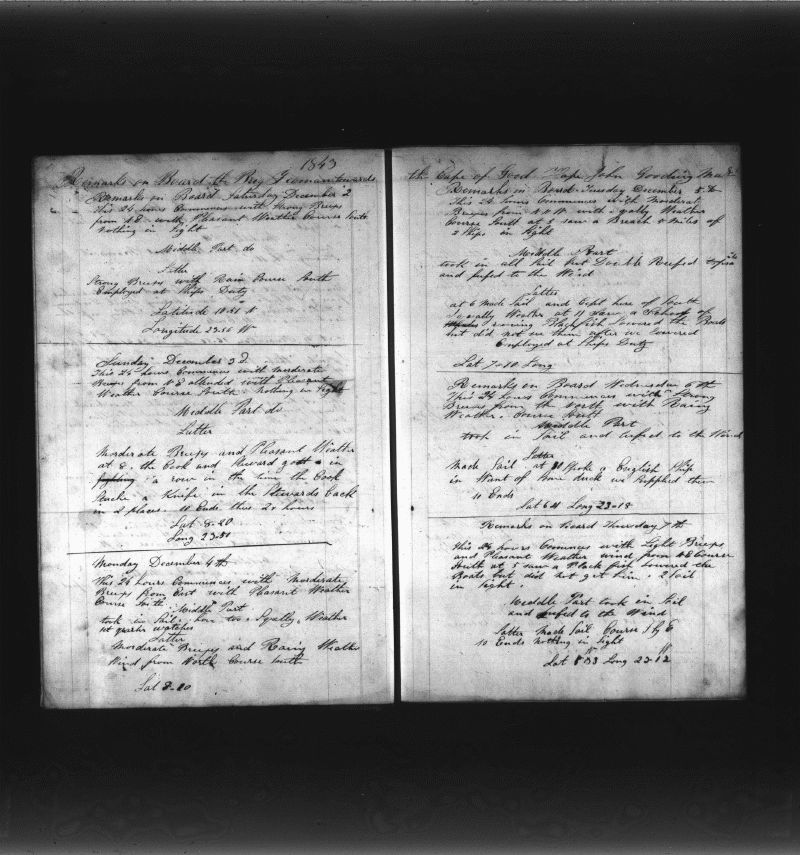 1843
Remarks on Board the Brig towards
Remarks on Board Saturday December 2
This 24 hours Commences with Strong Breeps
from NE with Pleasant Weather Course South
Nothing in Sight
Middle Part do
Latter
Strong Breeps with Rain Course South
Employed at Ships Duty
Latitude 10.51 N
Longitude 23.56 W
Sunday December 3d
This 24 hours Commences with Moderate
Breeps from NE attended with Pleasant
Weather Course South Nothing in Sight
Middle Part do
Latter
Morderate Breeps and Pleasant Weather
at 8. the Cook and Steward gott in
a row in the time the Cook
a Knife in the Stewards back
in 2 places. Ends thus 24 hours
Lat 8-20
Long 23.51
Monday December 4th
This 24 hours Commences with Morderate
Breeps from East with Pleasant Weather
Course South. Middle Part
took in Sail. Sqally Weather
1st quarter watches
Latter
Morderate Breeps and Rainy Weather
Wind from North Course South
Lat 8-10
the Cape of Good Hope John Gooding
Remarks on Board Tuesday December 5th
This 24 hours Commences with Morderate
Breeps from NW with Sqally Weather
Course South at 5 saw a Breach 4 Miles of
2 Ships in Sight
Middle Part
took in all Sail but Double Reefed
and to the Wind
Latter
at 6 Made Sail and Kept her of South
Sqally Weather at 11 Saw a School of
Blackfish Lowerd the Boats
but did not see them after we Lowered
Employed at Ships Duty
Lat 7-10 Long
Remarks on Board Wednesday 6th
This 24 hours Commences with Strong
Breeps from the North with Rainy
Weather. Course South
Middle Part
took in Sail and to the Wind
Latter
Made Sail at Spoke a English Ship
in Want of duck we Supplied them
so Ends
Lat 6 Long 23-18
Remarks on Board Thursday 7th
this 24 hours Commences with Light Breeps
and Pleasant Weather wind from NE Course
South at 5 saw a Black fish Lowered the
Boats but did not get him. 2 Sail
in Sight.
Middle Part took in Sail
and to the Wind
Latter Made Sail Course S by E
so Ends Nothing in Sight
Lat 5-53 Long 23-12